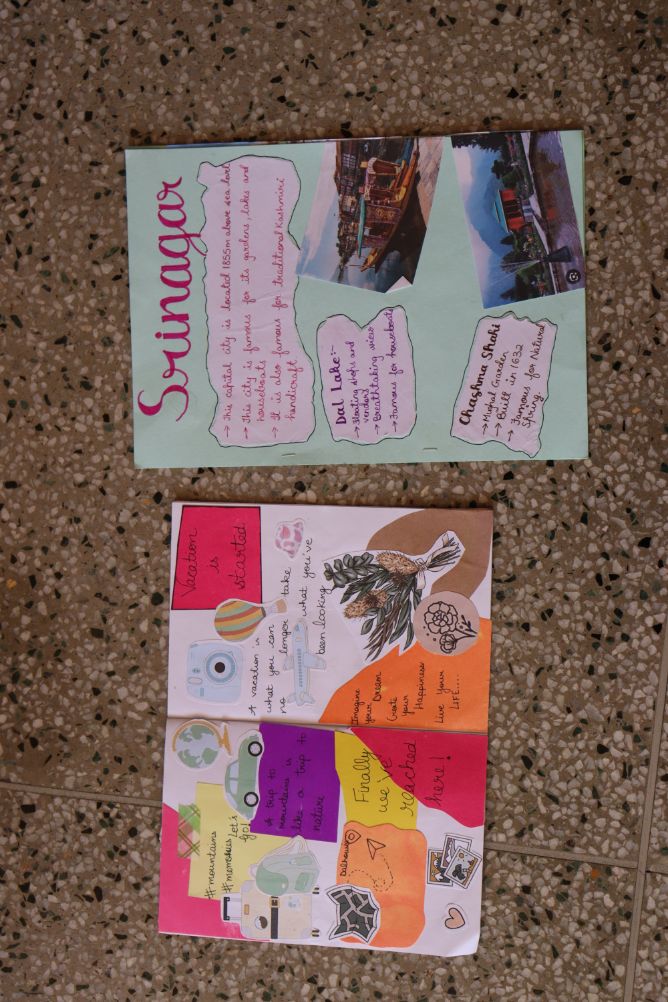 Srinagar
→ This capital city is located 1855m above sea level
→ This city is famous for its gardens, lakes and
houseboats
→ It is also famous for traditional Kashmiri
handicraft
Dal Lake:-
→ Floating shops and
vendors
→ Breathtaking view
→ Famous for houseboats
Chashma Shahi
→ Mughal Garden
→ Built in 1632
→ Famous for Natural
Spring.
Vacation
is
started
A vacation is
what you can
no longer take
what you've
been looking
Imagine
your Dream
Create
your
Happiness
Live your
LIFE....
#mountains
#memories
Let's
Go!
A trip to
mountains is
like a trip to
nature
Finally
we've
reached
here!
Dalhousie